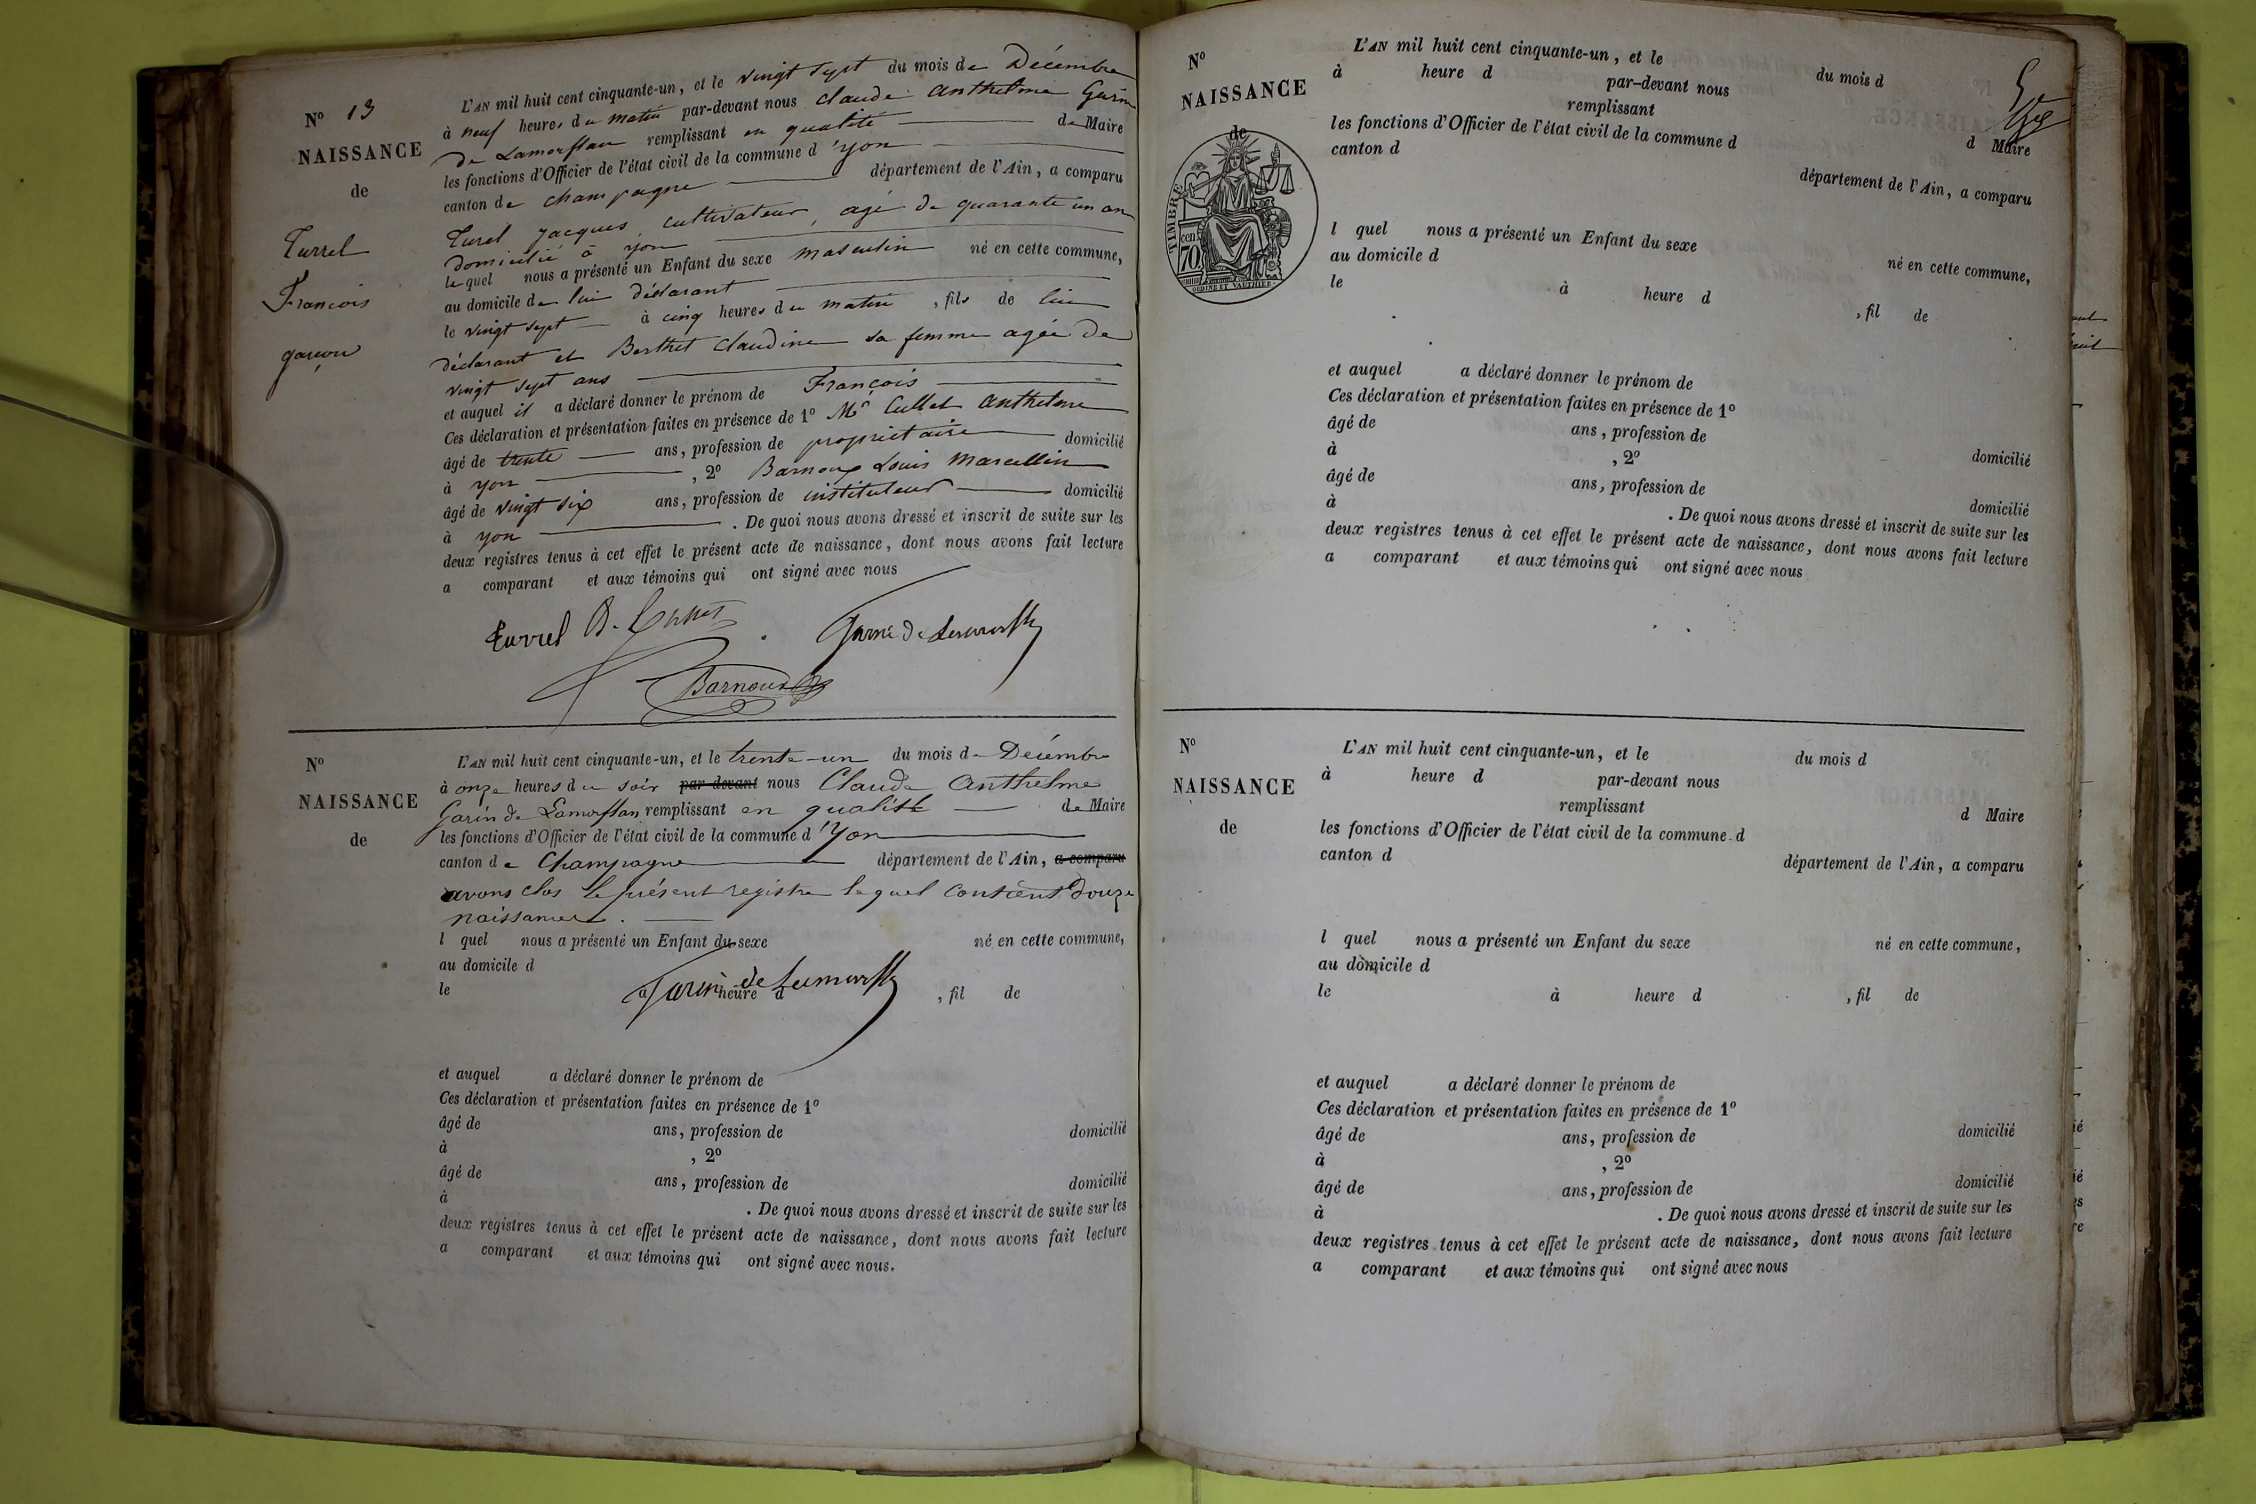 N° 13
NAISSANCE
de
Turrel
François
garçon
L'AN mil huit cent cinquante-un, et le vingt sept du mois de Décembre
à neuf heures du matin par-devant nous Claude Anthelme Garin
de Lamorflan remplissant en qualité de Maire
les fonctions d'Officier de l'état civil de la commune d'yon
canton de Champagne département de l'Ain, a comparu
Turel Jacques, cultivateur, agé de quarante un an
domicilié à yon
lequel nous a présenté un Enfant du sexe masculin né en cette commune,
au domicile de lui déclarant
le vingt sept à cinq heures du matin, fils de lui
déclarant et Berthet Claudine sa femme agée de
vingt sept ans
et auquel il a déclaré donner le prénom de François
Ces déclaration et présentation faites en présence de 1° Mr Cullet Anthelme
âgé de trente ans, profession de propriétaire domicilié
à yon, 2° Barnoux Louis Marcellin
âgé de vingt six ans, profession de instituteur domicilié
à yon. De quoi nous avons dressé et inscrit de suite sur les
deux registres tenus à cet effet le présent acte de naissance, dont nous avons fait lecture
a comparant et aux témoins qui ont signé avec nous
Turrel Garin de Lamorflan
Barnoud
N°
NAISSANCE
de
L'AN mil huit cent cinquante-un, et le trente-un du mois de Décembre
à onze heures du soir par-devant nous Claude Anthelme
Garin de Lamorflan remplissant en qualité de Maire
les fonctions d'Officier de l'état civil de la commune d'Yon
canton de Champagne département de l'Ain, a comparu
avons clos le présent registre lequel contient douze
naissances.
l quel nous a présenté un Enfant du sexe né en cette commune,
au domicile d
le à heure d , fil de
Garin de Lamorflan
et auquel a déclaré donner le prénom de
Ces déclaration et présentation faites en présence de 1°
âgé de ans, profession de domicilié
à , 2°
âgé de ans, profession de domicilié
à . De quoi nous avons dressé et inscrit de suite sur les
deux registres tenus à cet effet le présent acte de naissance, dont nous avons fait lecture
a comparant et aux témoins qui ont signé avec nous.
N°
NAISSANCE
de
TIMBRE
cen. 70
L'AN mil huit cent cinquante-un, et le du mois d
à heure d par-devant nous
remplissant d Maire
les fonctions d'Officier de l'état civil de la commune d
canton d département de l'Ain, a comparu
l quel nous a présenté un Enfant du sexe né en cette commune,
au domicile d
le à heure d , fil de
et auquel a déclaré donner le prénom de
Ces déclaration et présentation faites en présence de 1°
âgé de ans, profession de domicilié
à , 2°
âgé de ans, profession de domicilié
à . De quoi nous avons dressé et inscrit de suite sur les
deux registres tenus à cet effet le présent acte de naissance, dont nous avons fait lecture
a comparant et aux témoins qui ont signé avec nous
N°
NAISSANCE
de
L'AN mil huit cent cinquante-un, et le du mois d
à heure d par-devant nous
remplissant d Maire
les fonctions d'Officier de l'état civil de la commune d
canton d département de l'Ain, a comparu
l quel nous a présenté un Enfant du sexe né en cette commune,
au domicile d
le à heure d , fil de
et auquel a déclaré donner le prénom de
Ces déclaration et présentation faites en présence de 1°
âgé de ans, profession de domicilié
à , 2°
âgé de ans, profession de domicilié
à . De quoi nous avons dressé et inscrit de suite sur les
deux registres tenus à cet effet le présent acte de naissance, dont nous avons fait lecture
a comparant et aux témoins qui ont signé avec nous